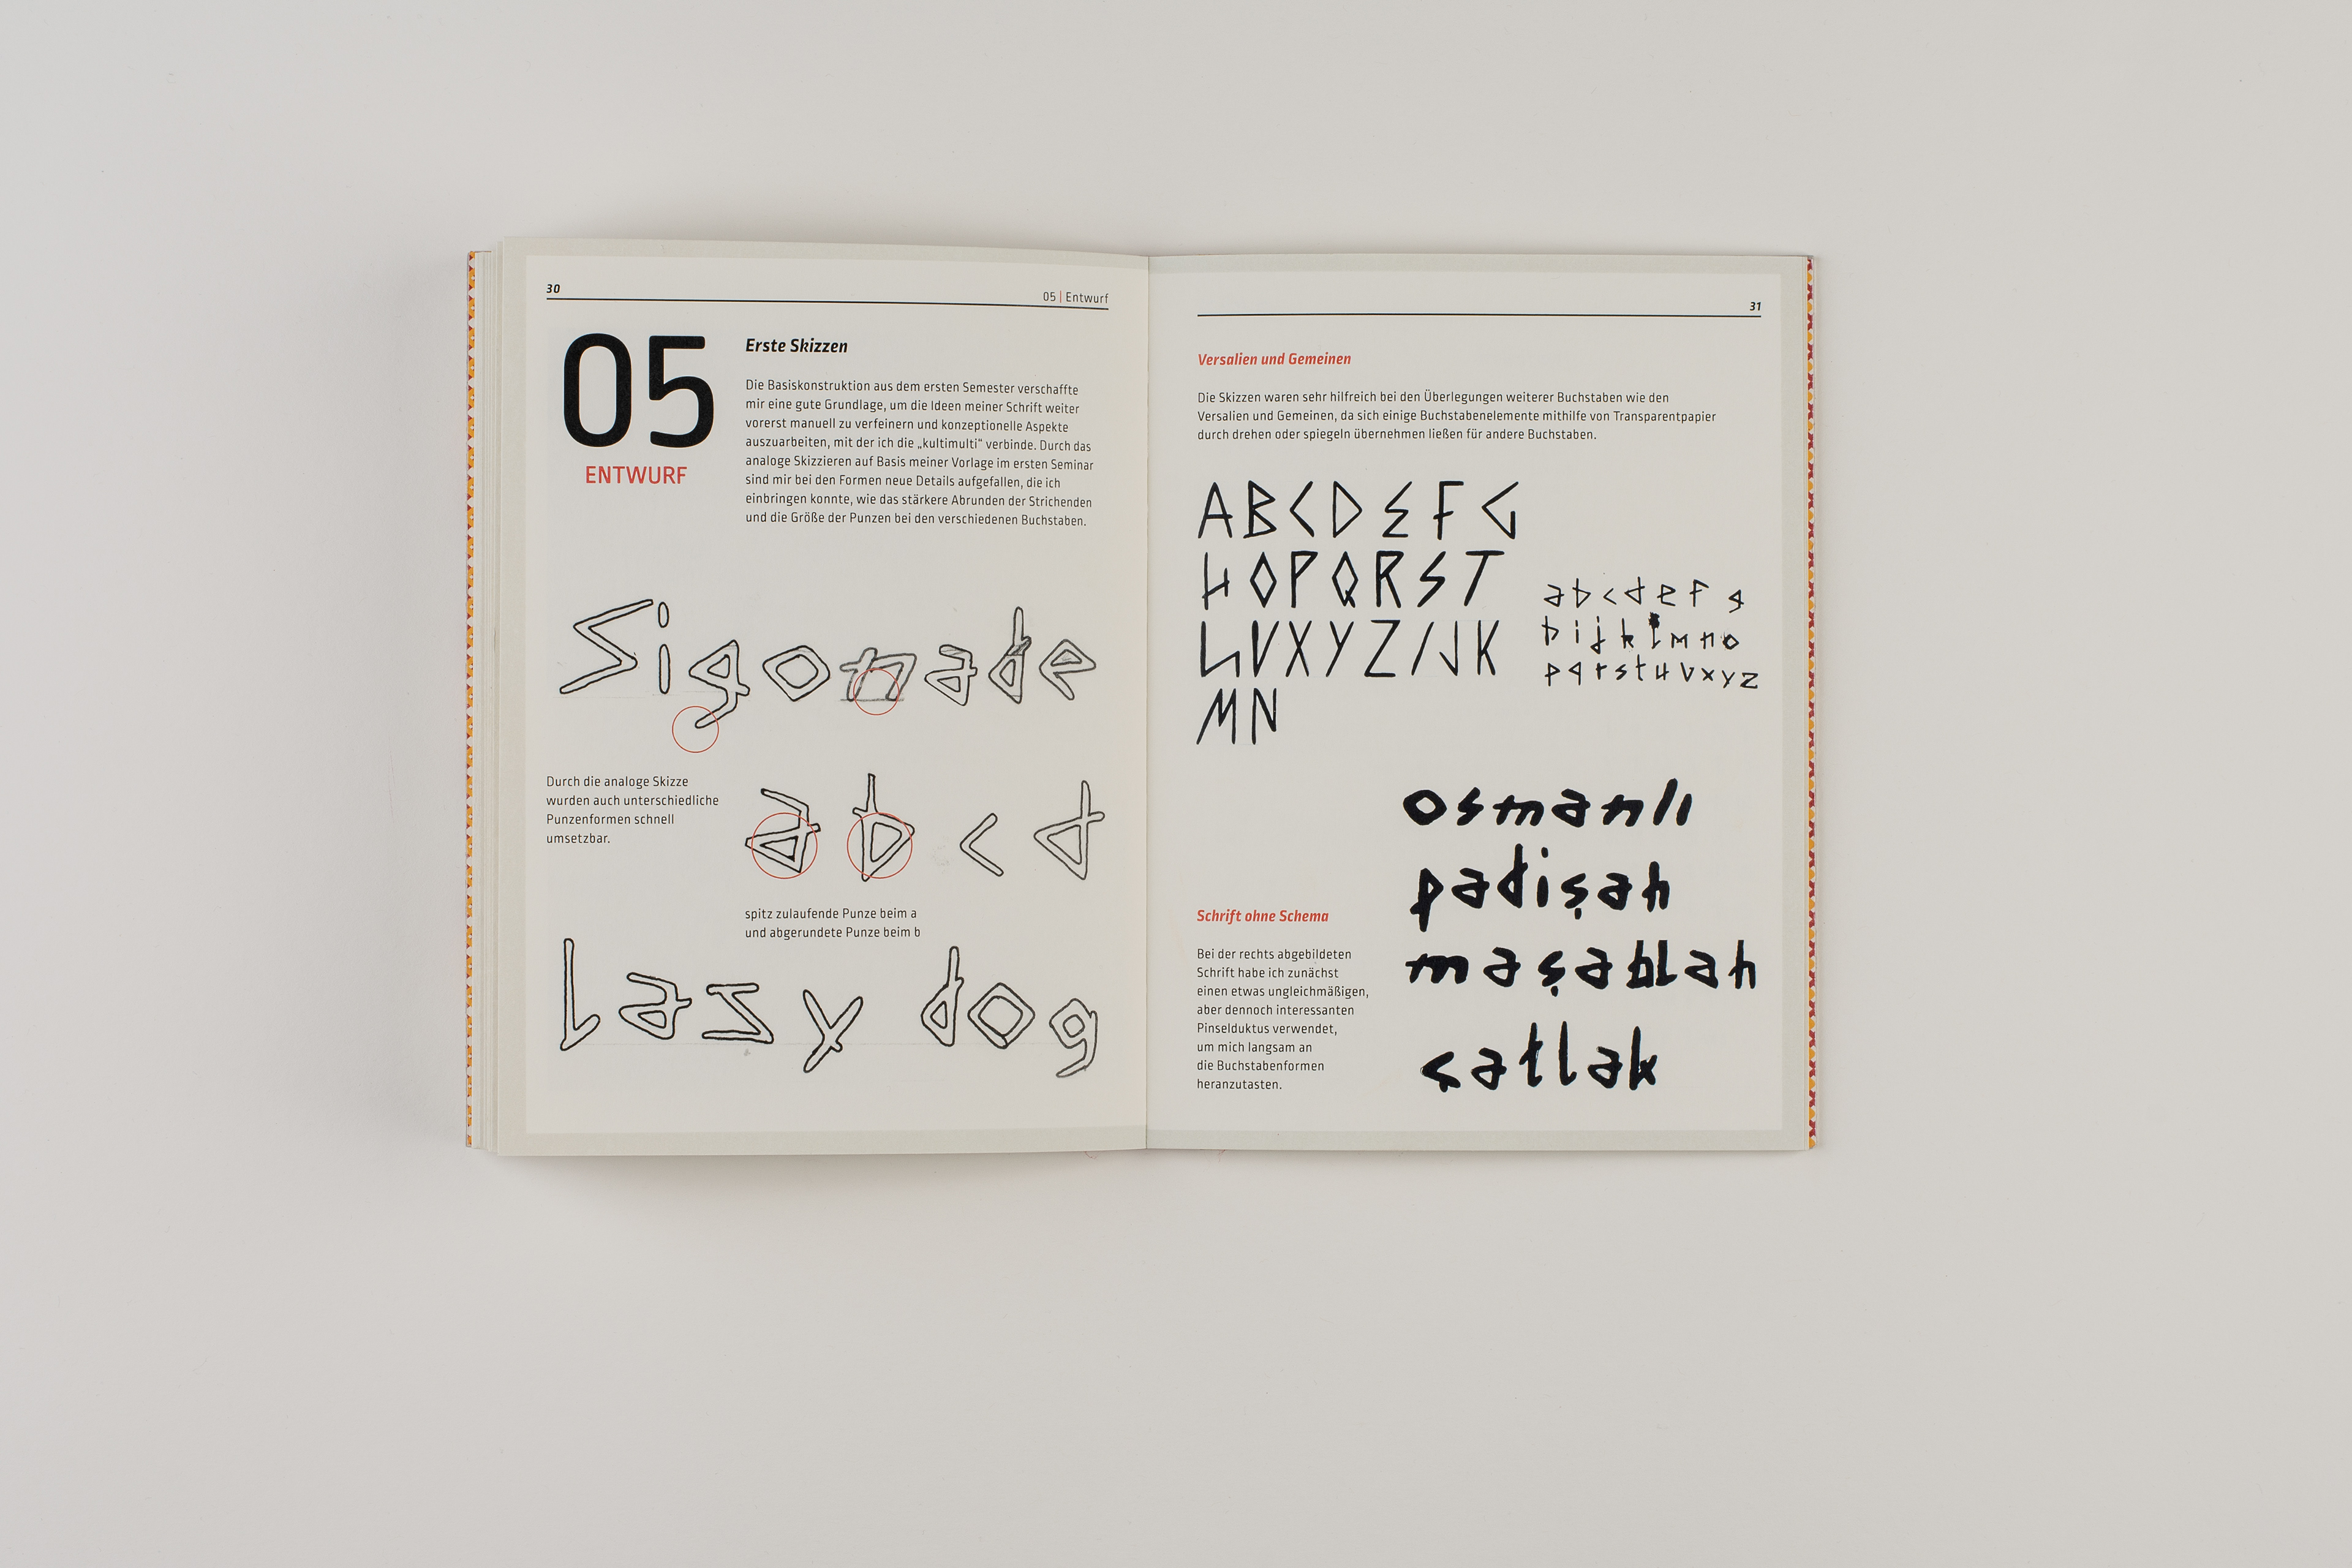 30
05 | Entwurf
05
ENTWURF
Erste Skizzen
Die Basiskonstruktion aus dem ersten Semester verschaffte
mir eine gute Grundlage, um die Ideen meiner Schrift weiter
vorerst manuell zu verfeinern und konzeptionelle Aspekte
auszuarbeiten, mit der ich die „kultimulti“ verbinde. Durch das
analoge Skizzieren auf Basis meiner Vorlage im ersten Seminar
sind mir bei den Formen neue Details aufgefallen, die ich
einbringen konnte, wie das stärkere Abrunden der Strichenden
und die Größe der Punzen bei den verschiedenen Buchstaben.
Sigonade
Durch die analoge Skizze
wurden auch unterschiedliche
Punzenformen schnell
umsetzbar.
a b c d
spitz zulaufende Punze beim a
und abgerundete Punze beim b
Lazy dog
31
Versalien und Gemeinen
Die Skizzen waren sehr hilfreich bei den Überlegungen weiterer Buchstaben wie den
Versalien und Gemeinen, da sich einige Buchstabenelemente mithilfe von Transparentpapier
durch drehen oder spiegeln übernehmen ließen für andere Buchstaben.
A B C D E F G
H O P Q R S T
L V X Y Z I J K
M N
a b c d e f g
h i j k l m n o
p q r s t u v x y z
osmanlı
padişah
maşallah
çatlak
Schrift ohne Schema
Bei der rechts abgebildeten
Schrift habe ich zunächst
einen etwas ungleichmäßigen,
aber dennoch interessanten
Pinselduktus verwendet,
um mich langsam an
die Buchstabenformen
heranzutasten.